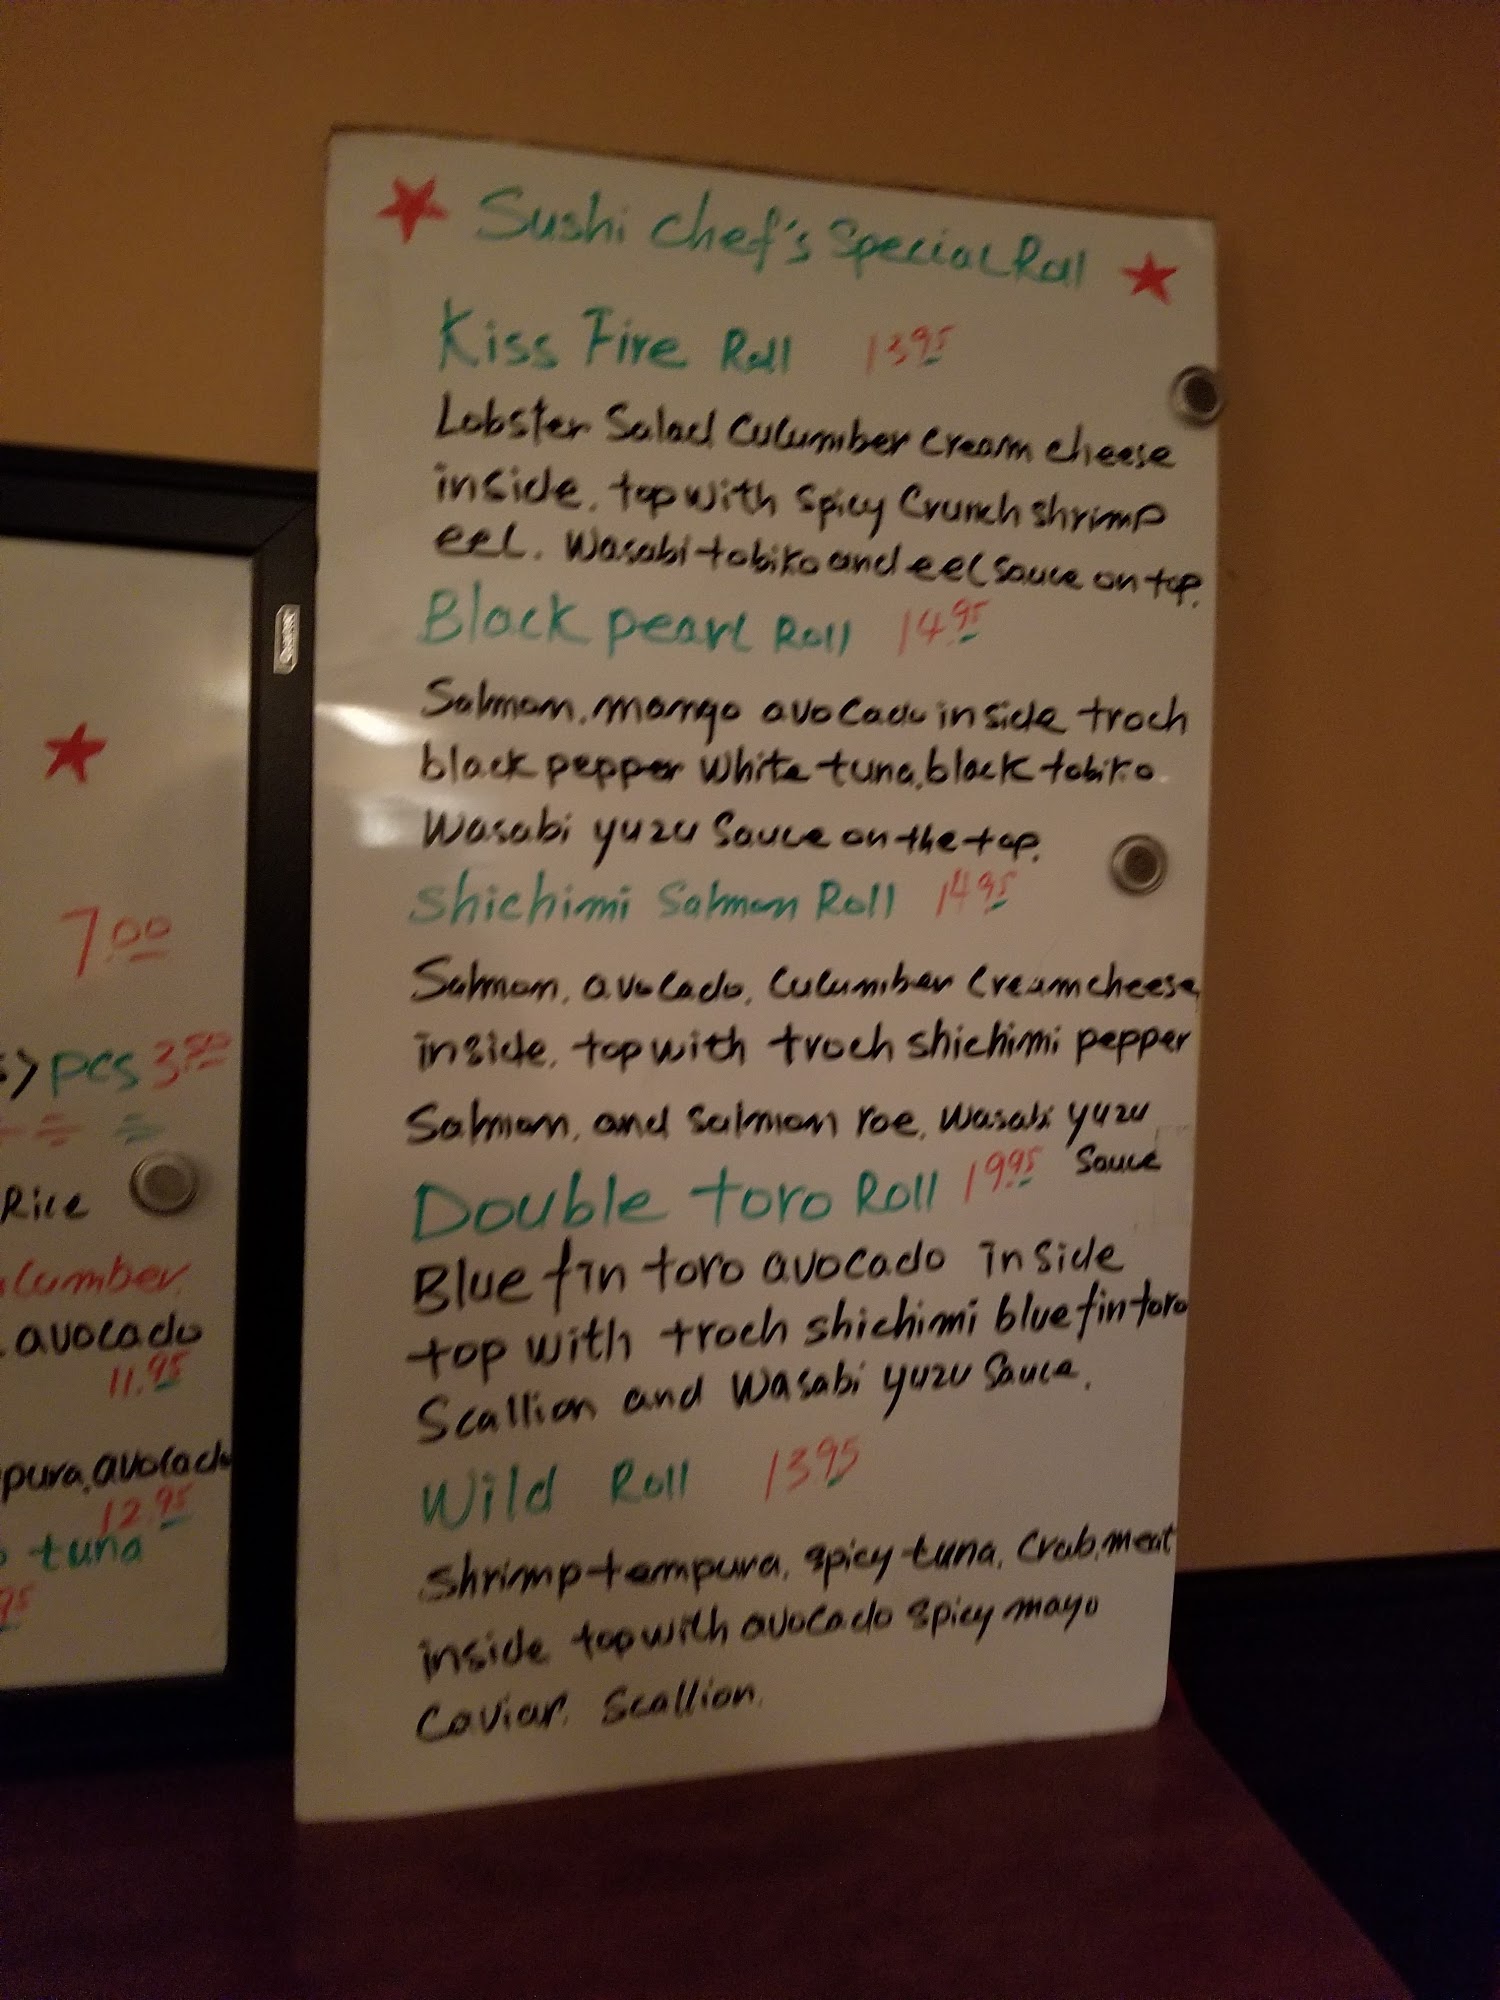 Sushi Chef's Special Roll
Kiss Fire Roll 13.95
Lobster Salad Cucumber Cream cheese
inside. top with Spicy Crunch shrimp
eel. Wasabi tobiko and eel sauce on top.
Black pearl Roll 14.95
Salmon, mango avocado inside troch
black pepper White tuna, black tobiko
Wasabi yuzu Sauce on the top.
Shichimi Salmon Roll 14.95
Salmon, avocado, Cucumber Cream cheese
inside, top with troch shichimi pepper
Salmon, and salmon roe, Wasabi yuzu
Sauce
Double toro Roll 19.95
Blue fin toro avocado inside
top with troch shichimi blue fin toro
Scallion and Wasabi yuzu Sauce.
Wild Roll 13.95
Shrimp tempura, spicy tuna, Crab meat
inside top with avocado spicy mayo
Caviar. Scallion.
7.00
pcs 3.50
Rice
avocado
11.95
avocado
12.95
tuna
95
Quartet